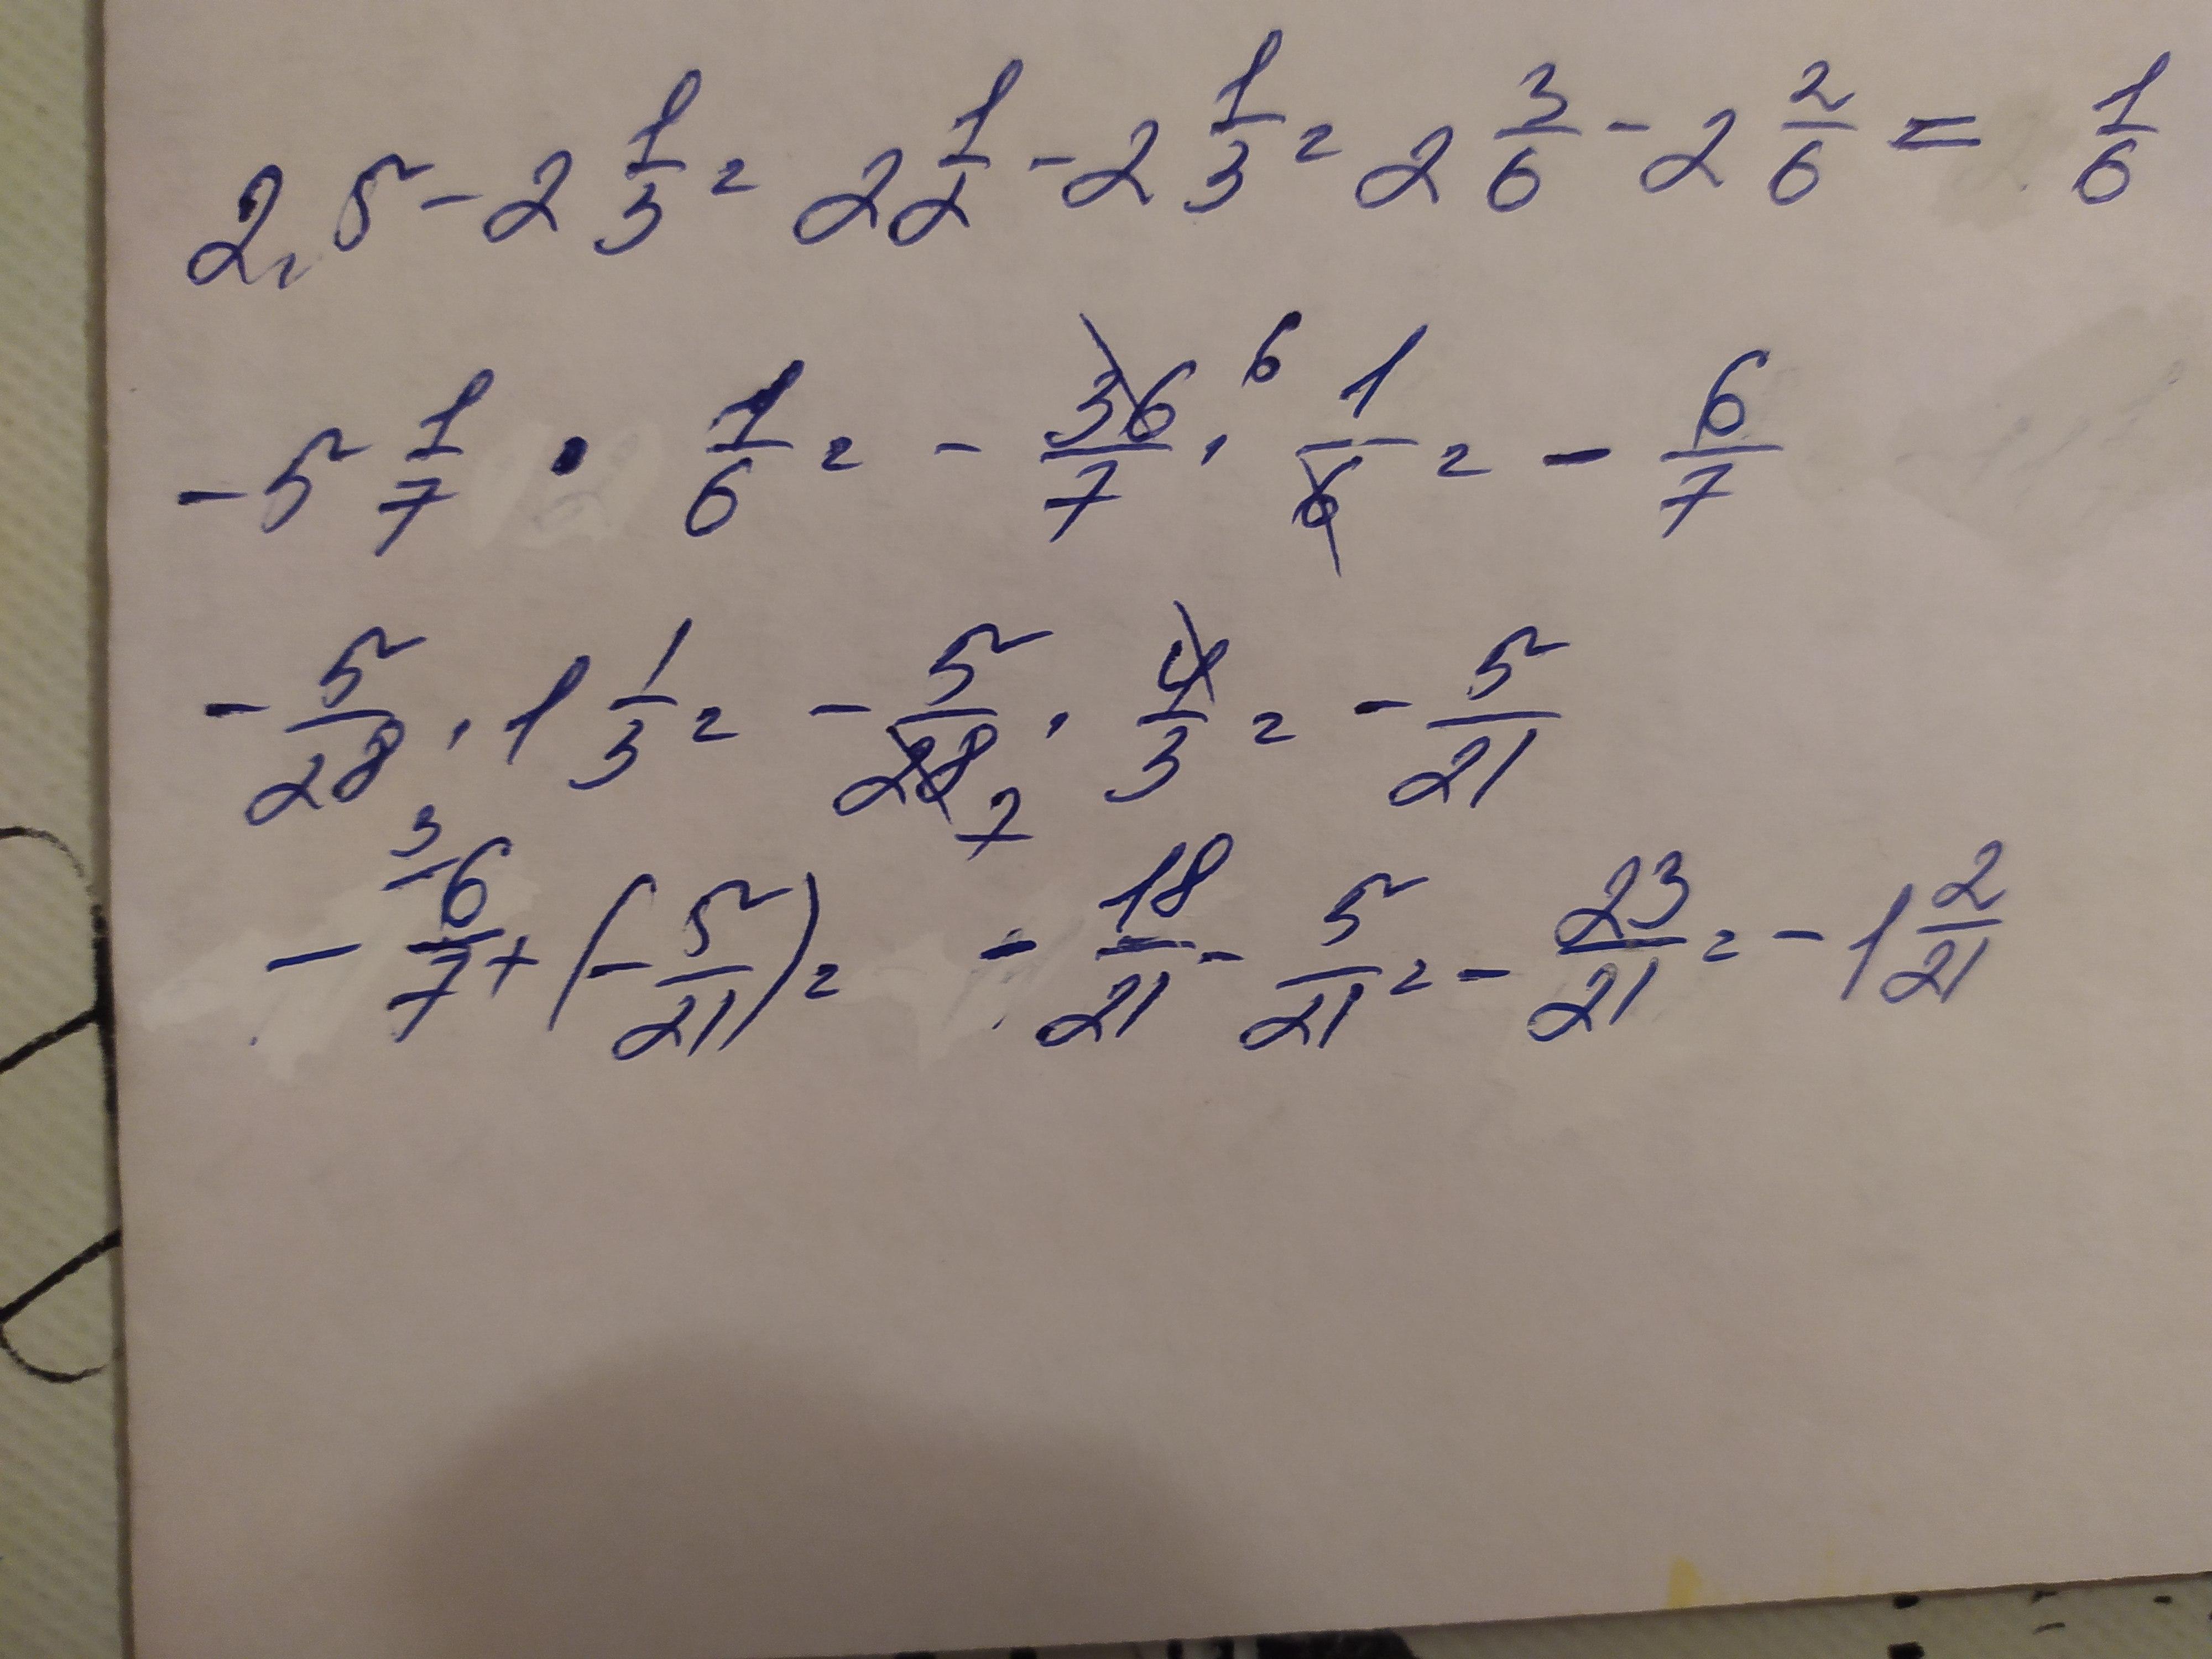 2,5 - 2 1/3 = 2 1/2 - 2 1/3 = 2 3/6 - 2 2/6 = 1/6
- 5 1/7 · 1/6 = - 36/7 · 6 1/6 = - 6/7
- 5/28 · 1 1/3 = - 5/28 7 · 4/3 = - 5/21
- 3 6/7 + (- 5/21) = - 18/21 - 5/21 = - 23/21 = - 1 2/21